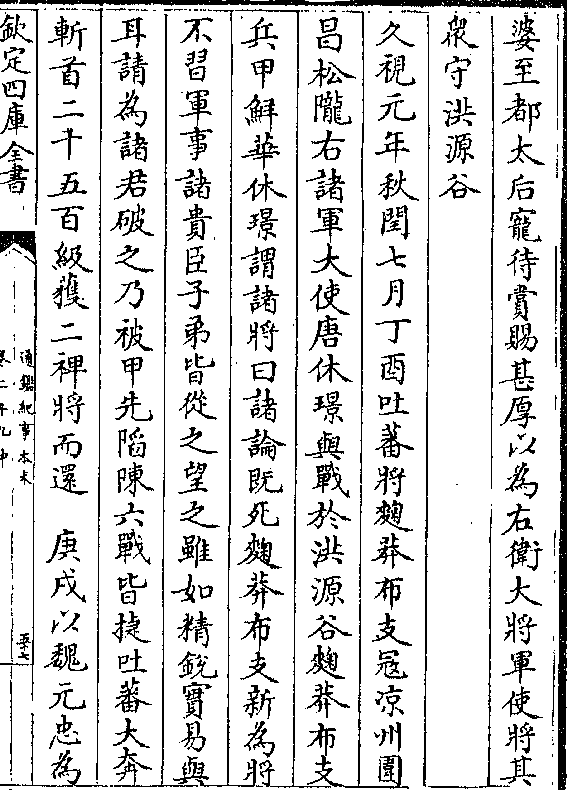 婆至都太后寵待賞賜甚厚以為右衛大將軍使將其
衆守洪源谷
久視元年秋閏七月丁酉吐蕃將麴莽布支冦凉州圍
昌松隴右諸軍大使唐休璟與戰於洪源谷麴莽布支
兵甲鮮華休璟謂諸將曰諸論既死麴莽布支新為將
不習軍事諸貴臣子弟皆從之望之雖如精鋭實易與
耳請為諸君破之乃被甲先陷陳六戰皆捷吐蕃大奔
斬首二千五百級獲二裨將而還　庚戌以魏元忠為
欽定四庫全書
通鑑紀事本末
卷二十九中